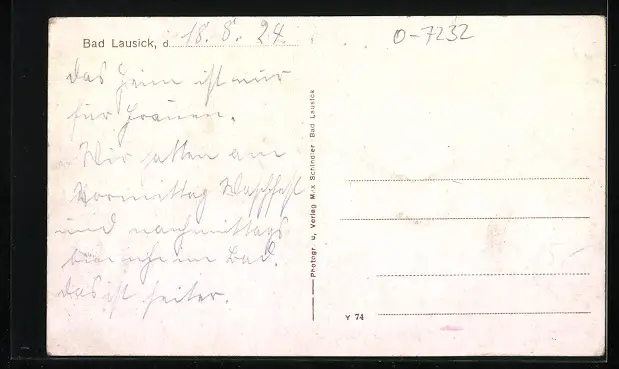 Bad Lausick, d 18. 8. 24.
O-7232
Das Heim ist nur
für Frauen.
Wir hatten am
Vormittag
und nachmittags
Bad.
Das ist heiter.
Photogr. u. Verlag Max Schindler, Bad Lausick
15,-
Y 74